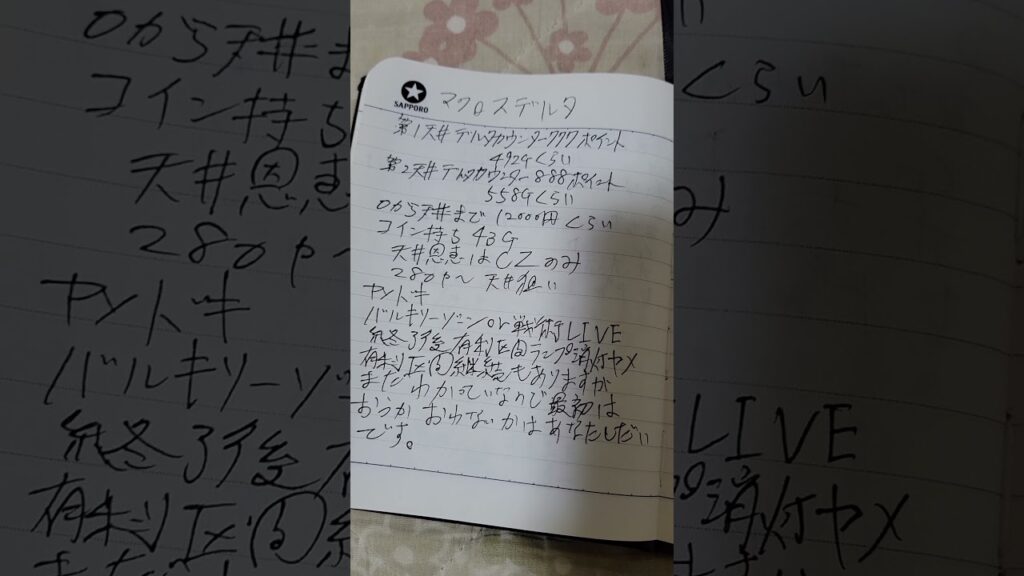 SAPPORO
マクロスデルタ
第1天井デルタカウンター777ポイント
492Gくらい
第2天井デルタカウンター888ポイント
558Gくらい
0から天井まで12000円くらい
コイン持ち43G
天井恩恵はCZのみ
280p〜天井狙い
ヤメドキ
バルキリーゾーンor戦術LIVE
終了後有利区間ランプ消灯ヤメ
有利区間継続もありますが
まだわかっていないので最初は
おうかおわないかはあなたしだい
です。